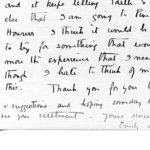 and it keeps telling
else that I am going to
However I think it would b
to try for something that wou
more the experience that I nee
though I hate to think of m
this.
Thank you for you
& suggestions and hoping someday
see your settlment. Yours since
Emily